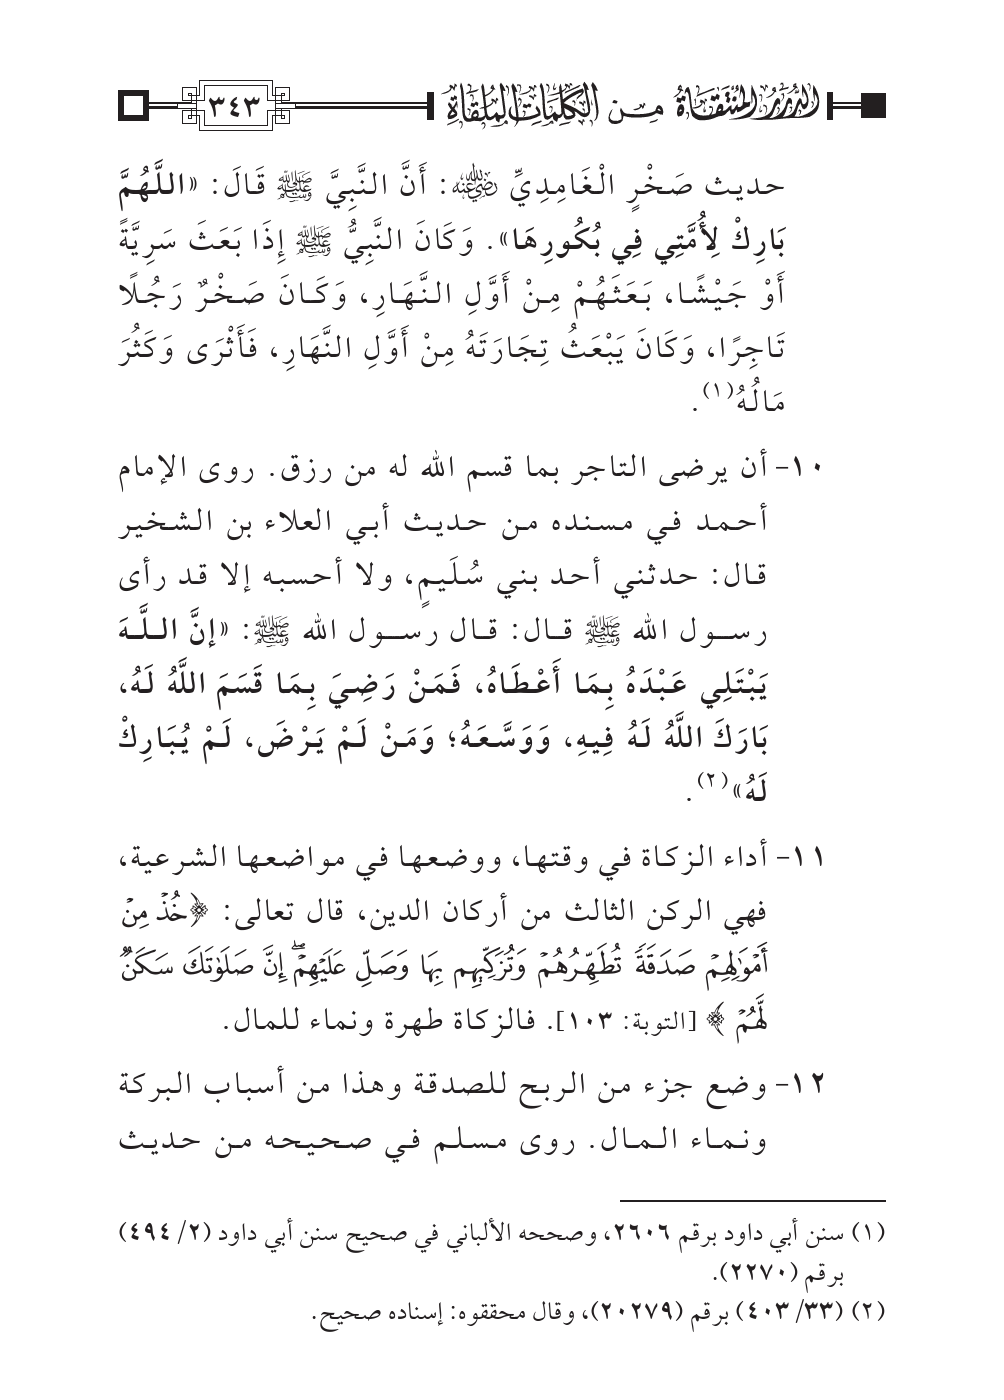 الدُّرَرُ المُنْتَقَاةُ مِنَ الكَلِمَاتِ المُلْقَاةِ
٣٤٣
حديث صَخْرٍ الْغَامِدِيِّ رضي الله عنه: أَنَّ النَّبِيَّ ﷺ قَالَ: «اللَّهُمَّ
بَارِكْ لِأُمَّتِي فِي بُكُورِهَا». وَكَانَ النَّبِيُّ ﷺ إِذَا بَعَثَ سَرِيَّةً
أَوْ جَيْشًا، بَعَثَهُمْ مِنْ أَوَّلِ النَّهَارِ، وَكَانَ صَخْرٌ رَجُلًا
تَاجِرًا، وَكَانَ يَبْعَثُ تِجَارَتَهُ مِنْ أَوَّلِ النَّهَارِ، فَأَثْرَى وَكَثُرَ
مَالُهُ(١).
١٠- أن يرضى التاجر بما قسم الله له من رزق. روى الإمام
أحمد في مسنده من حديث أبي العلاء بن الشخير
قال: حدثني أحد بني سُلَيمٍ، ولا أحسبه إلا قد رأى
رسول الله ﷺ قال: قال رسول الله ﷺ: «إنَّ اللَّهَ
يَبْتَلِي عَبْدَهُ بِمَا أَعْطَاهُ، فَمَنْ رَضِيَ بِمَا قَسَمَ اللَّهُ لَهُ،
بَارَكَ اللَّهُ لَهُ فِيهِ، وَوَسَّعَهُ؛ وَمَنْ لَمْ يَرْضَ، لَمْ يُبَارِكْ
لَهُ»(٢).
١١- أداء الزكاة في وقتها، ووضعها في مواضعها الشرعية،
فهي الركن الثالث من أركان الدين، قال تعالى: ﴿خُذۡ مِنۡ
أَمۡوَٰلِهِمۡ صَدَقَةٗ تُطَهِّرُهُمۡ وَتُزَكِّيهِم بِهَا وَصَلِّ عَلَيۡهِمۡۖ إِنَّ صَلَوٰتَكَ سَكَنٞ
لَّهُمۡ﴾ [التوبة: ١٠٣]. فالزكاة طهرة ونماء للمال.
١٢- وضع جزء من الربح للصدقة وهذا من أسباب البركة
ونماء المال. روى مسلم في صحيحه من حديث
(١) سنن أبي داود برقم ٢٦٠٦، وصححه الألباني في صحيح سنن أبي داود (٢/ ٤٩٤)
برقم (٢٢٧٠).
(٢) (٣٣/ ٤٠٣) برقم (٢٠٢٧٩)، وقال محققوه: إسناده صحيح.